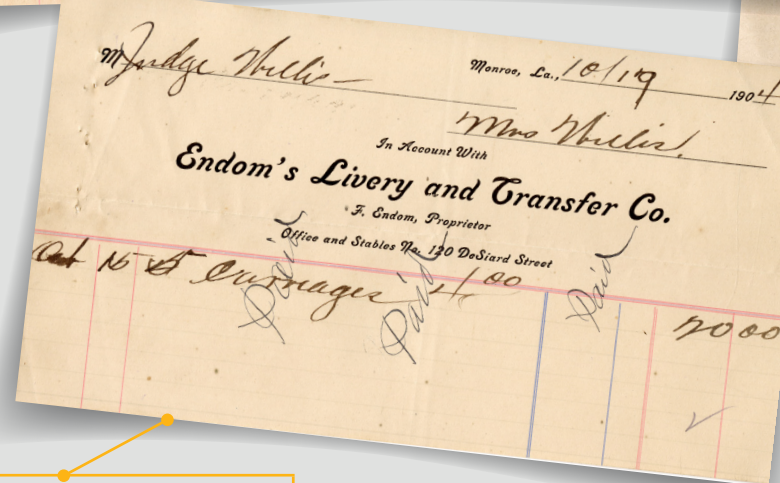 M Judge Willis
Monroe, La., 10/19 1904
Mrs Willis.
In Account With
Endom's Livery and Transfer Co.
F. Endom, Proprietor
Office and Stables No. 120 DeSiard Street
Oct 15 5 Carriages 4 00 20 00
Paid Paid Paid